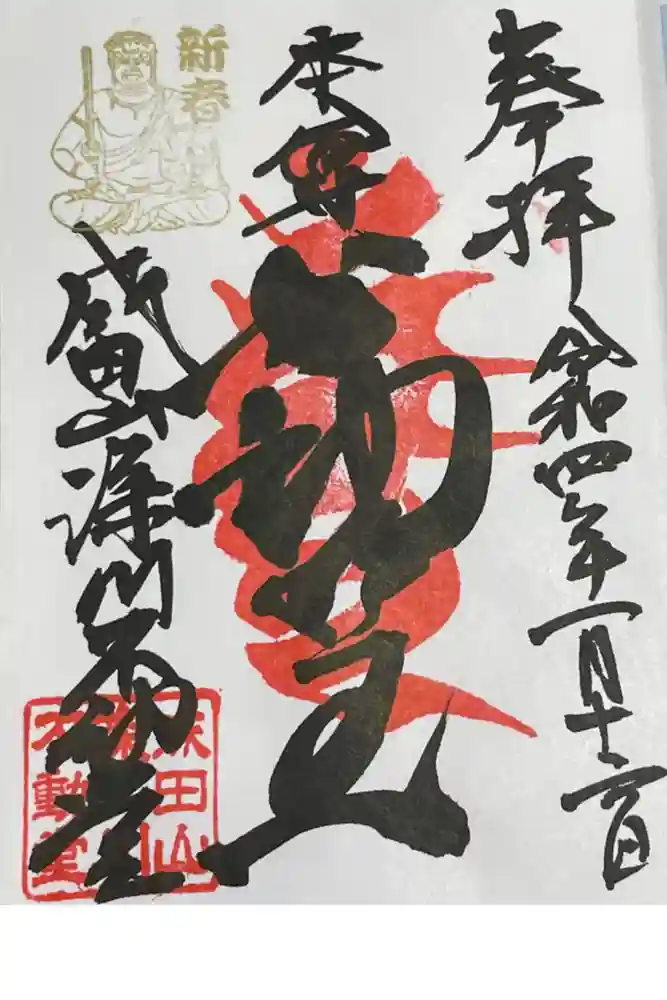 奉拝
令和四年一月十六日
本尊
成田山深川不動堂
新春
成田山
深川
不動堂